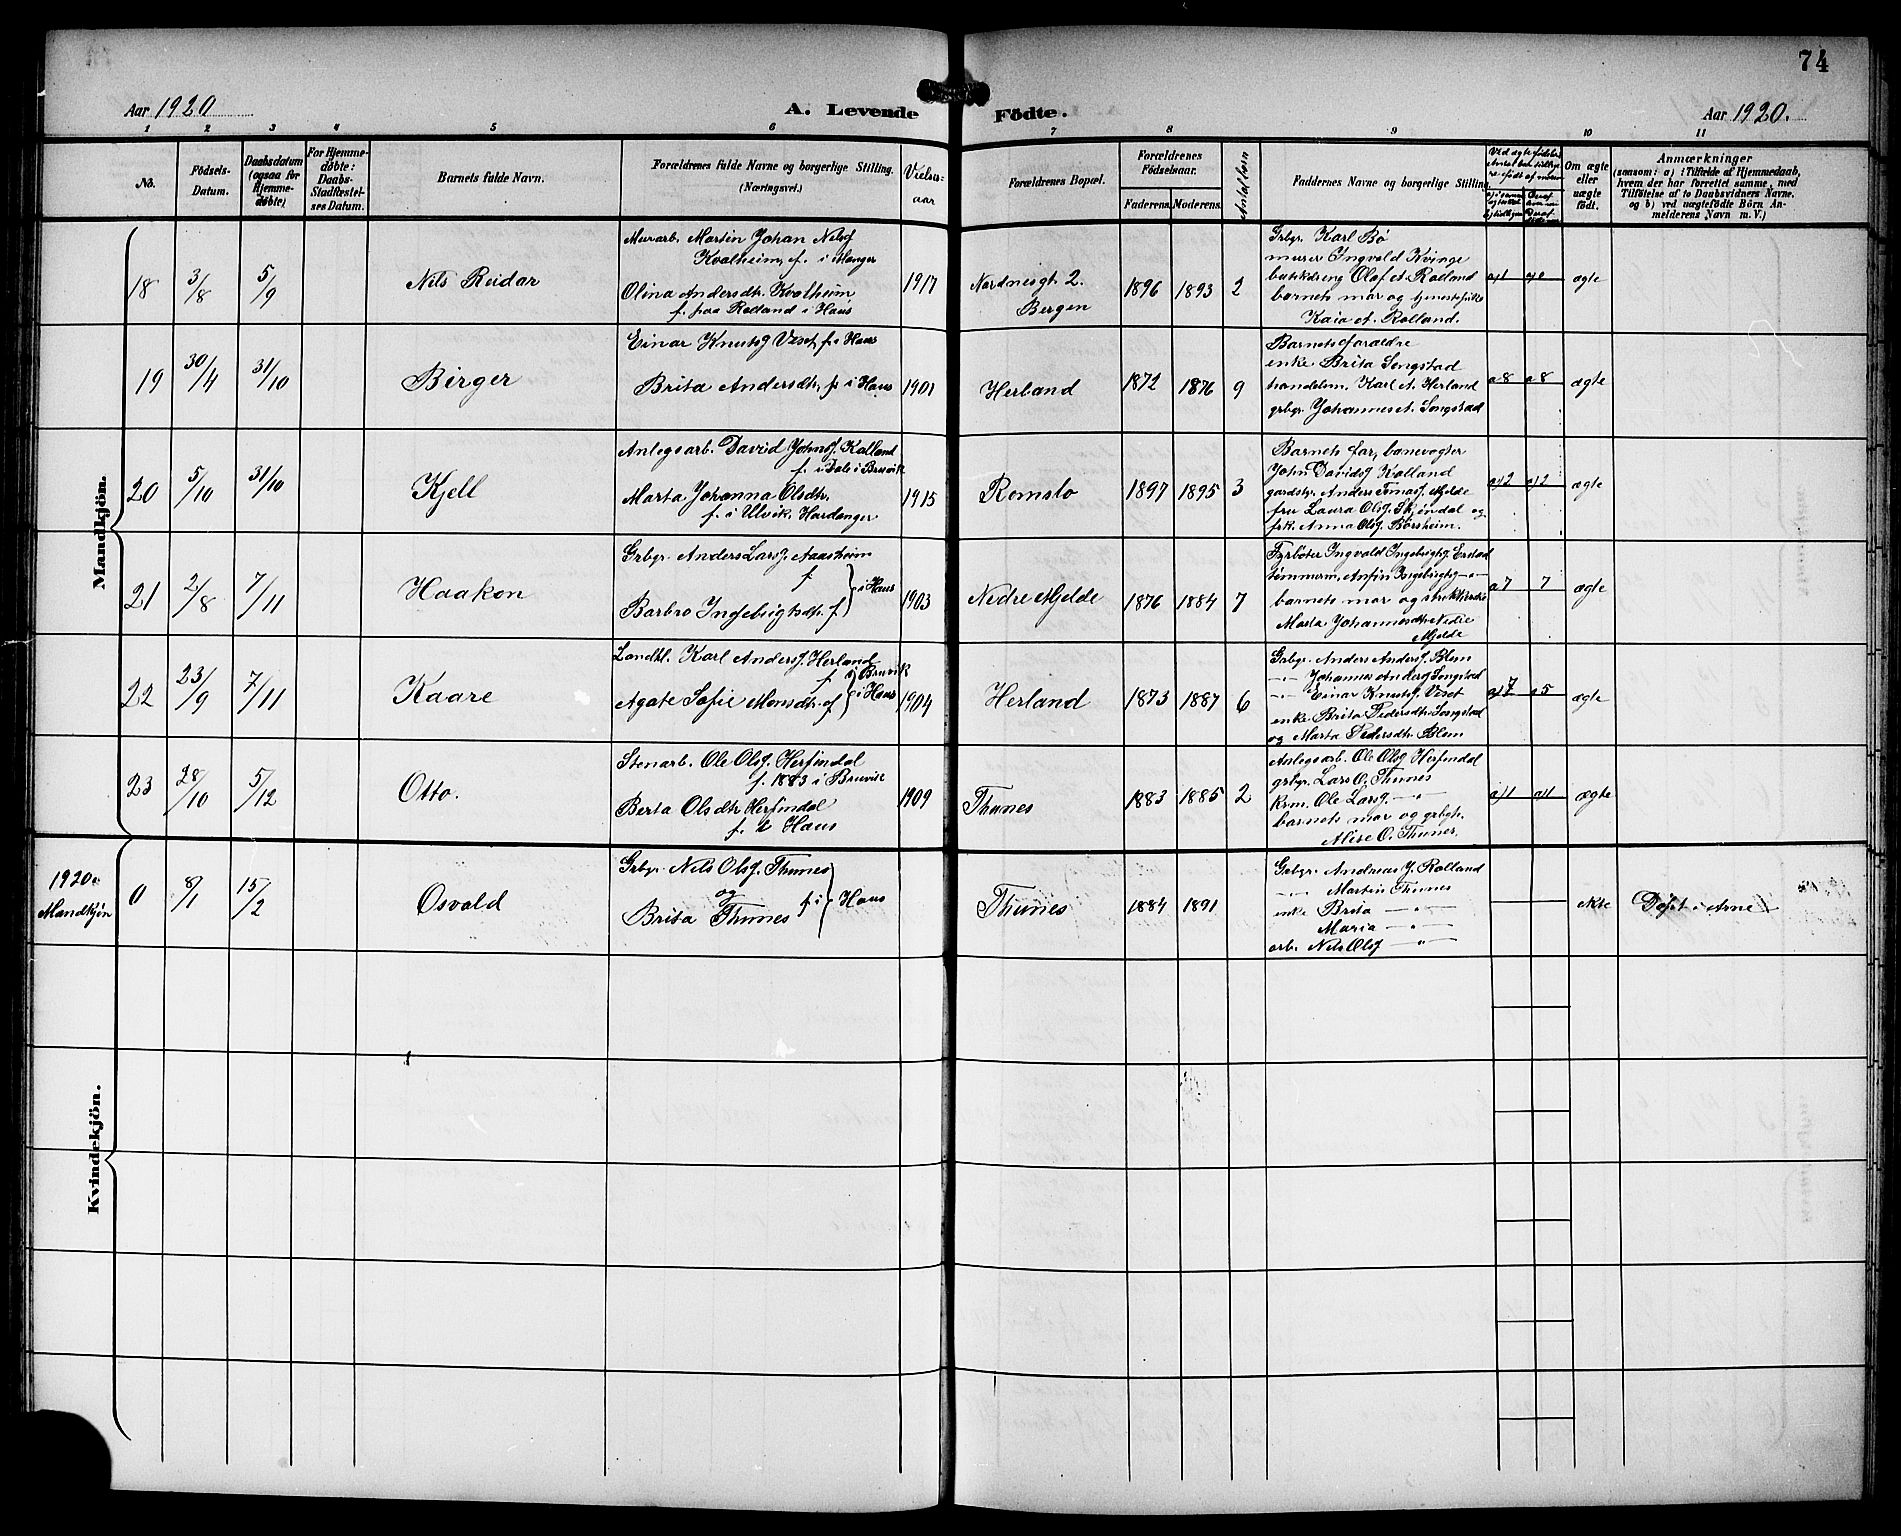 74
Aar 1920
A. Levende
Födte.
Aar 1920.
1 2 3 4 5 6 7 8 9 10 11
No.
Födsels-
Datum.
Daabsdatum
(ogsaa for
Hjemme-
døbte)
For Hjemme-
døbte:
Daabs-
Stadfæstel-
ses Datum.
Barnets fulde Navn.
Forældrenes fulde Navne og borgerlige Stilling.
(Næringsvei.)
Vielses-
aar
Forældrenes Bopæl.
Forældrenes
Födselsaar.
Faderens. Moderens.
Antal barn
Faddernes Navne og borgerlige Stilling.
Om ægte
eller
uægte
født.
Anmærkninger
(saasom: a) i Tilfælde af Hjemmedaab,
hvem der har forrettet samme, med
Tilføielse af to Daabsvidners Navne,
og b) ved uægtefödte Börn An-
melderens Navn m. V.)
Mandkjön.
18
3/8
5/9
Nils Reidar
Murarb. Martin Johan Nilsf
Kvalheim, f. i Manger
Olina Andersdtr. Kvalheim
f. paa Rolland i Haus
1917
Nordnesgt. 2.
Bergen
1896 1893 2
Grbgr. Karl Bø
murer Ingvald Kvinge
butikdreng Olaf A. Rolland
barnets mor og tjenestefrøk
Kaia A. Rolland.
ægte
19
30/4
31/10
Birger
Einar Knutsf Veset, f. i Haus
Brita Andersdtr, f. i Haus
1901
Herland
1872 1876 9
Barnets forældre
enke Brita Songstad
handelsm. Karl A. Herland
grbgr. Johannes A. Songstad
a8 a8
ægte
20
5/10
31/10
Kjell
Anlegsarb. David Johnsf. Kalland
f. i Dale i Bruvik
Marta Johanna Olsdtr.
f. i Ulvik, Hardanger
1915
Romslo
1897 1895 3
Barnets far, banevogter
John Davidsf Kalland
gardstr. Anders Tomasf. Mjelde
fru Laura Olsf. Skjøndal og
frk. Anna Olsf Børsheim.
ægte
21
2/8
7/11
Haakon
Grbgr. Anders Larsf. Aaasheim
f
Barbro Ingebrigtsdtr. f.
i Haus
1903
Nedre Mjelde
1876 1884 7
Fyrbøter Ingvald Ingebrigtf. Erstad
tømmerm. Anfin Ingebrigtf —"—
barnets mor og
Marta Johannesdtr Nedre
Mjelde
a7 7
ægte
22
23/9
7/11
Kaare
Landhl. Karl Andersf. Herland
f i Bruvik
Agate Sofie Monsdtr. f i Haus
1904
Herland
1873 1887 6
Grbgr. Anders Andersf. Blom
—"— Johannes Andersf Songstad
—"— Einar Knutsf. Veset
enke Brita Pedersdtr Songstad
og Marta Pedersdtr Blom
ægte
23
28/10
5/12
Otto.
Stenarb. Ole Olsf. Herfindal
f. 1883 i Bruvik
Berta Olsdtr Herfindal
f. i Haus
1909
Thunes
1883 1885 2
Anlegsarb. Ole Olsf Herfindal
grbgr. Lars O. Thunes
kvm. Ole Larsf. —"—
barnets mor og grbgk.
Alise O. Thunes.
ægte
1920
Mandkjøn
0
8/1
15/2
Osvald
Grbgr. Nils Olsf. Thunes
og
Brita Thunes
f i Haus
Thunes
1884 1891
Grbgr. Andreas J. Rolland
—"— Martin Thunes
enke Brita —"—
Maria —"—
arb. Nils Olsf —"—
ekte
Døpt i Arne
Kvindekjön.